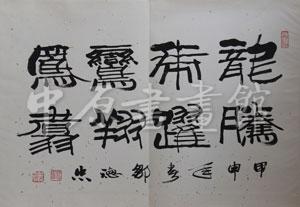 龍騰
虎躍
鸞翔
鳳翥
甲申春鄒德忠
書畫館